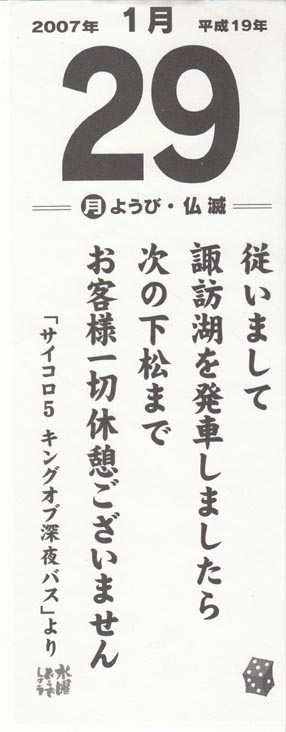 2007年 1月 平成19年
29
月ようび・仏滅
従いまして
諏訪湖を発車しましたら
次の下松まで
お客様一切休憩ございません
「サイコロ5 キングオブ深夜バス」より
水曜どうでしょう